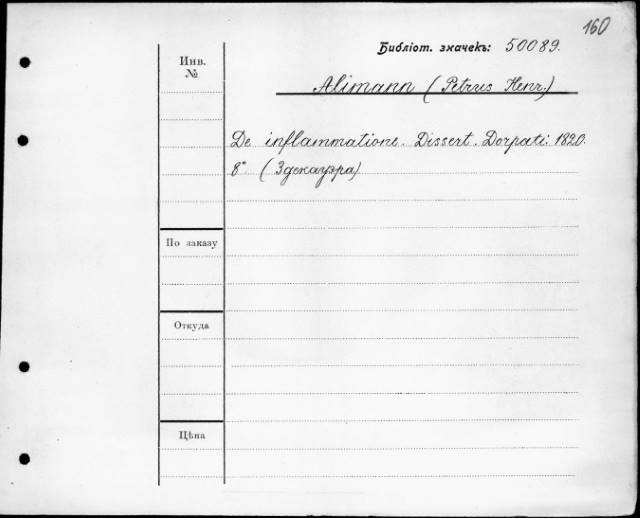 160
Библіот. значекъ: 50089.
Инв.
№
Alimann (Petrus Henr.)
De inflammatione. Dissert. Dorpati: 1820.
8° (Здекауэра)
По заказу
Откуда
Цѣна